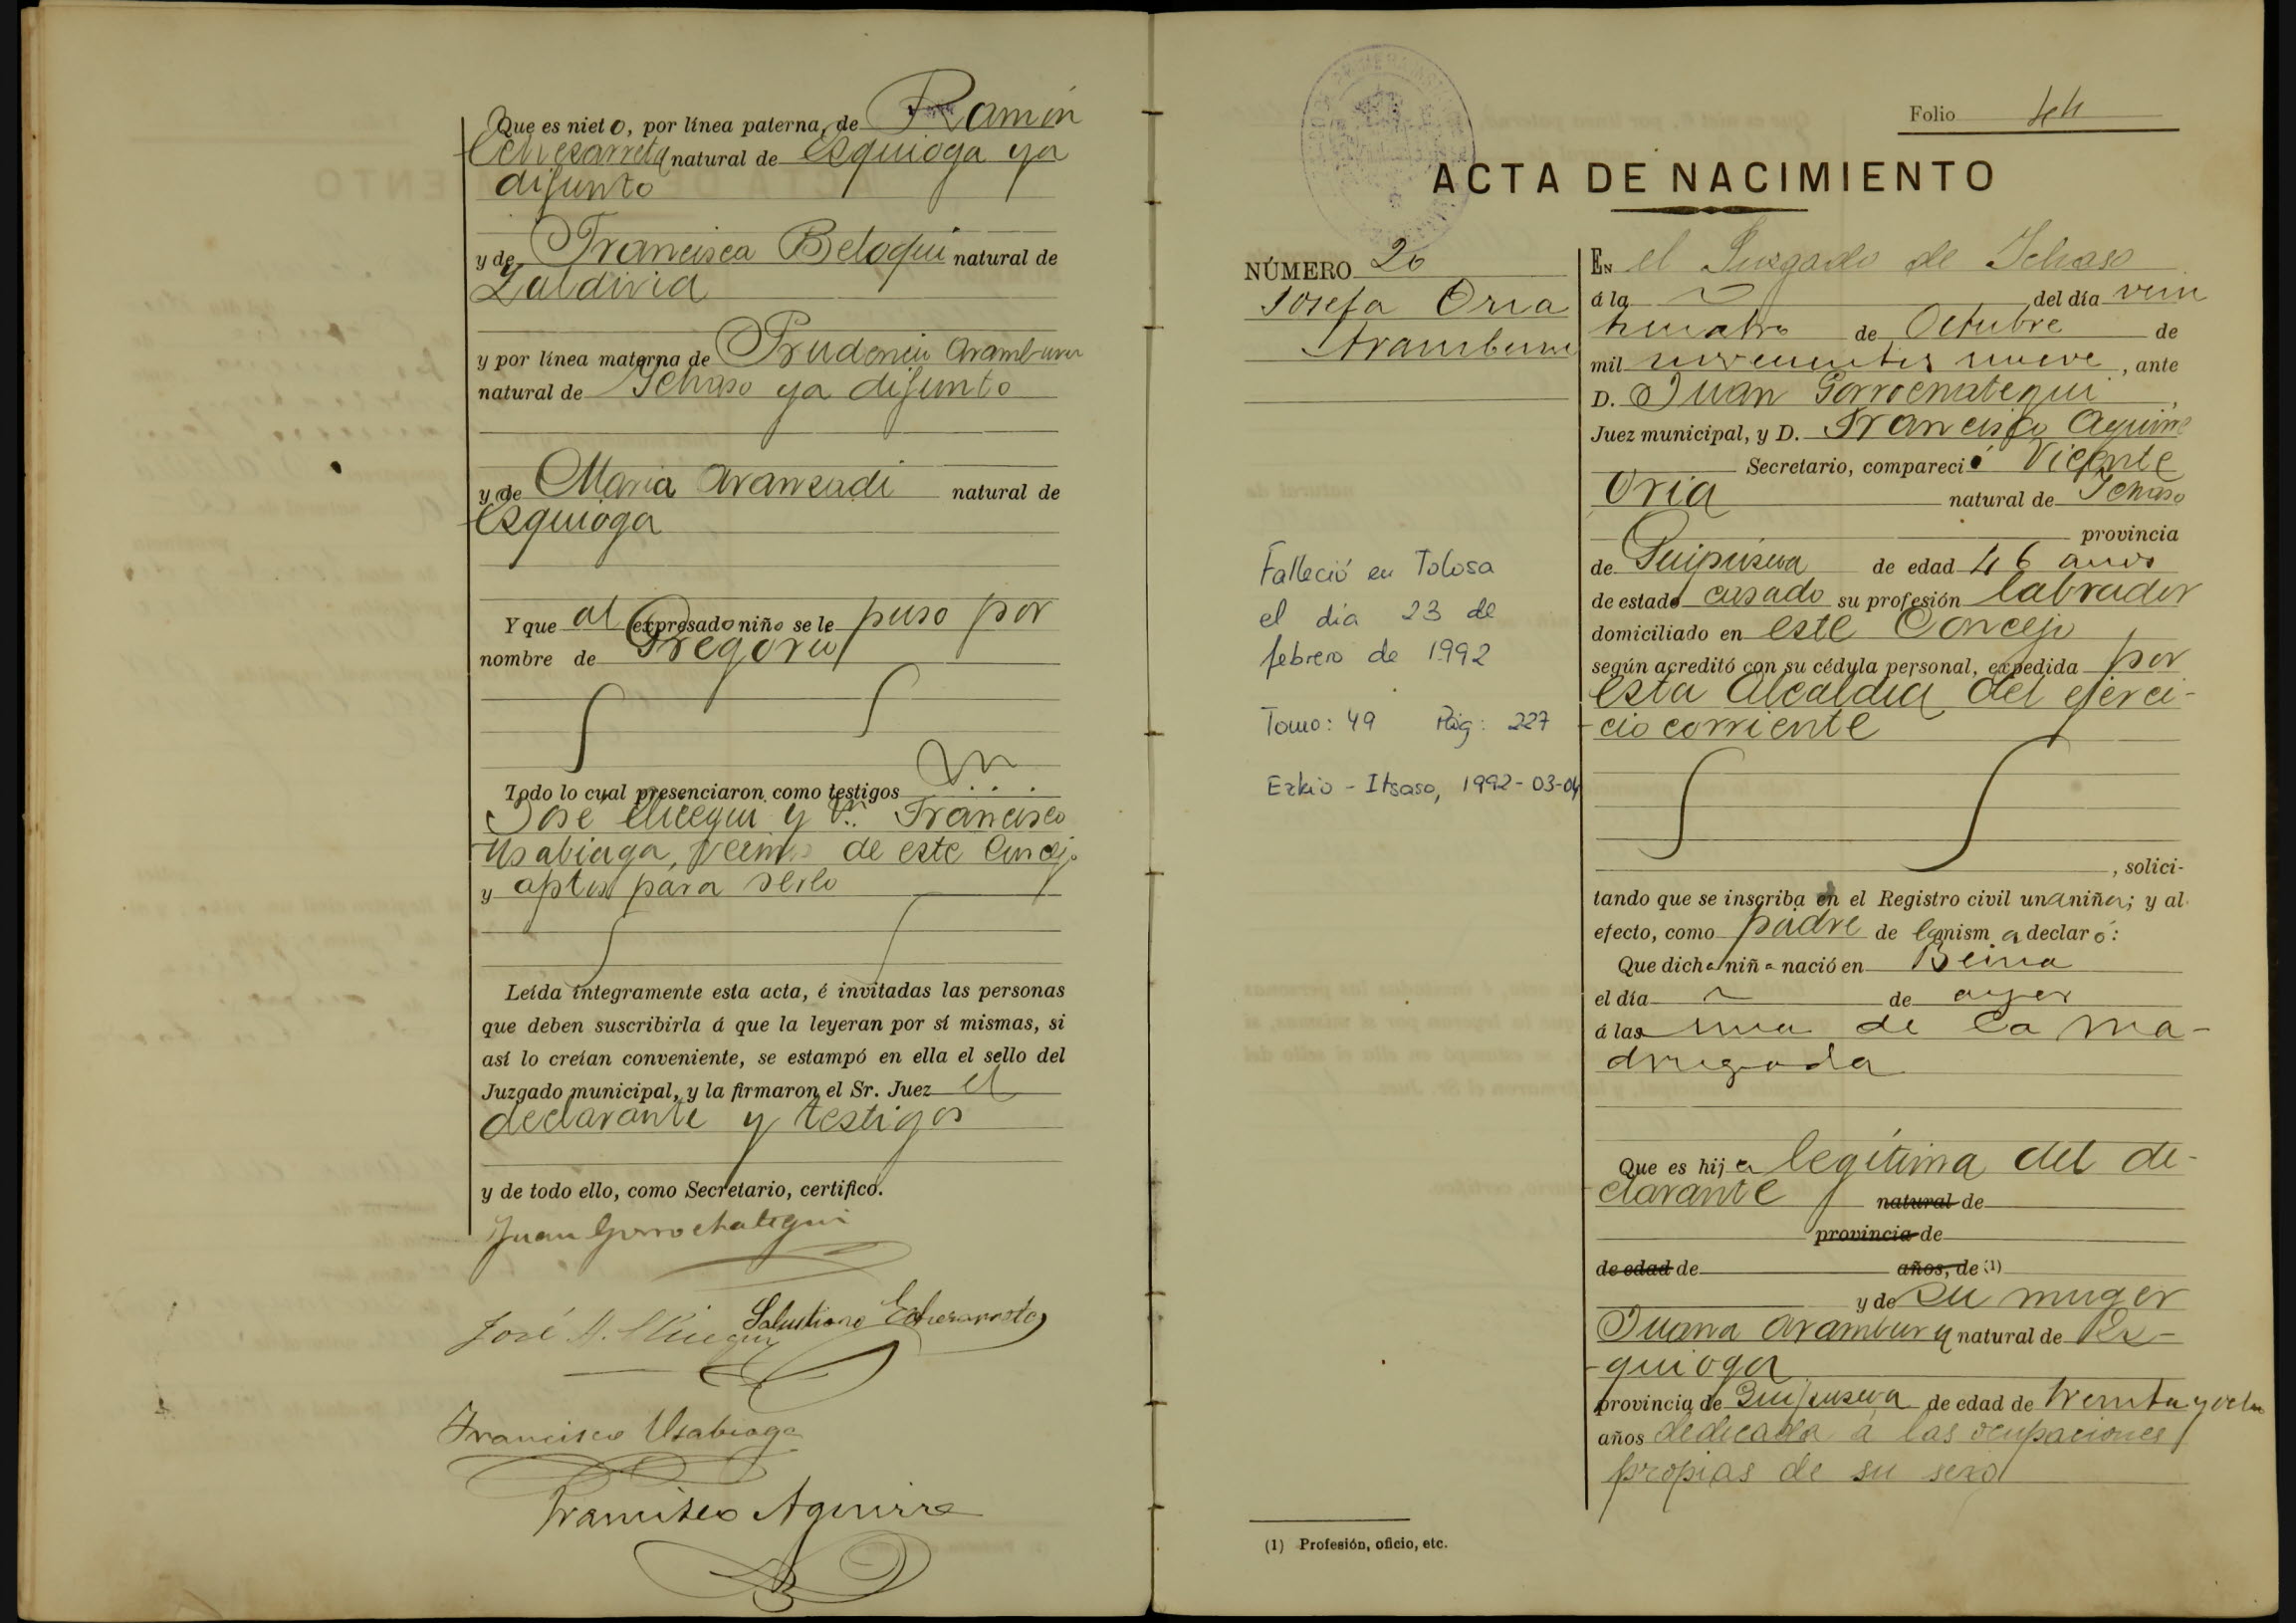 Que es nieto, por línea paterna, de Ramón
Echezarreta natural de Esquioga ya
difunto
y de Francisca Beloqui natural de
Zaldivia
y por línea materna de Prudencio Aramburu
natural de Ichaso ya difunto
y de Maria Aranzadi natural de
Esquioga
Y que al expresado niño se le puso por
nombre de Gregorio
Todo lo cual presenciaron como testigos
José Elicegui y Francisco
Usabiaga, vecinos de este Concejo
y aptos para serlo
Leída íntegramente esta acta, é invitadas las personas
que deben suscribirla á que la leyeran por sí mismas, si
así lo creían conveniente, se estampó en ella el sello del
Juzgado municipal, y la firmaron el Sr. Juez el
declarante y testigos
y de todo ello, como Secretario, certifico.
Juan Gorrochategui
Salustiano Echezarreta
José A. Elicegui
Francisco Usabiaga
Francisco Aguirre
Folio 44
ACTA DE NACIMIENTO
NÚMERO 20
Josefa Oria
Aramburu
Falleció en Tolosa
el día 23 de
febrero de 1992
Tomo: 49 Pág: 227
Ezkio - Itsaso, 1992-03-04
En el Juzgado de Ichaso
á la del día vein
ticuatro de Octubre de
mil novecientos nueve, ante
D. Juan Gorrochategui,
Juez municipal, y D. Francisco Aguirre
Secretario, compareció Vicente
Oria natural de Ichaso
provincia
de Guipúscua de edad 46 años
de estado casado su profesión labrador
domiciliado en este Concejo
según acreditó con su cédula personal, expedida por
esta Alcaldia del ejerci-
cio corriente
, solici-
tando que se inscriba en el Registro civil una niña; y al
efecto, como padre de la misma declaró:
Que dicha niña nació en
el día de ayer
á las una de la ma-
drugada
Que es hija legítima del de-
clarante natural de
provincia de
de edad de años, de (1)
y de su muger
Juana Aramburu natural de Es-
quioga
provincia de Guipuscua de edad de treinta y ocho
años dedicada á las ocupaciones
propias de su sexo
(1) Profesión, oficio, etc.